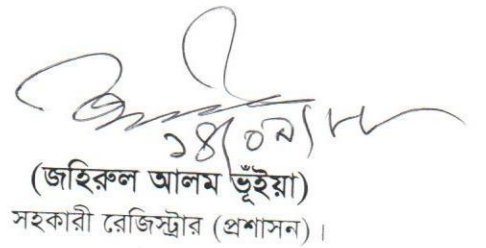 ১৪/০৯/
(জহিরুল আলম ভূঁইয়া)
সহকারী রেজিস্ট্রার (প্রশাসন)।